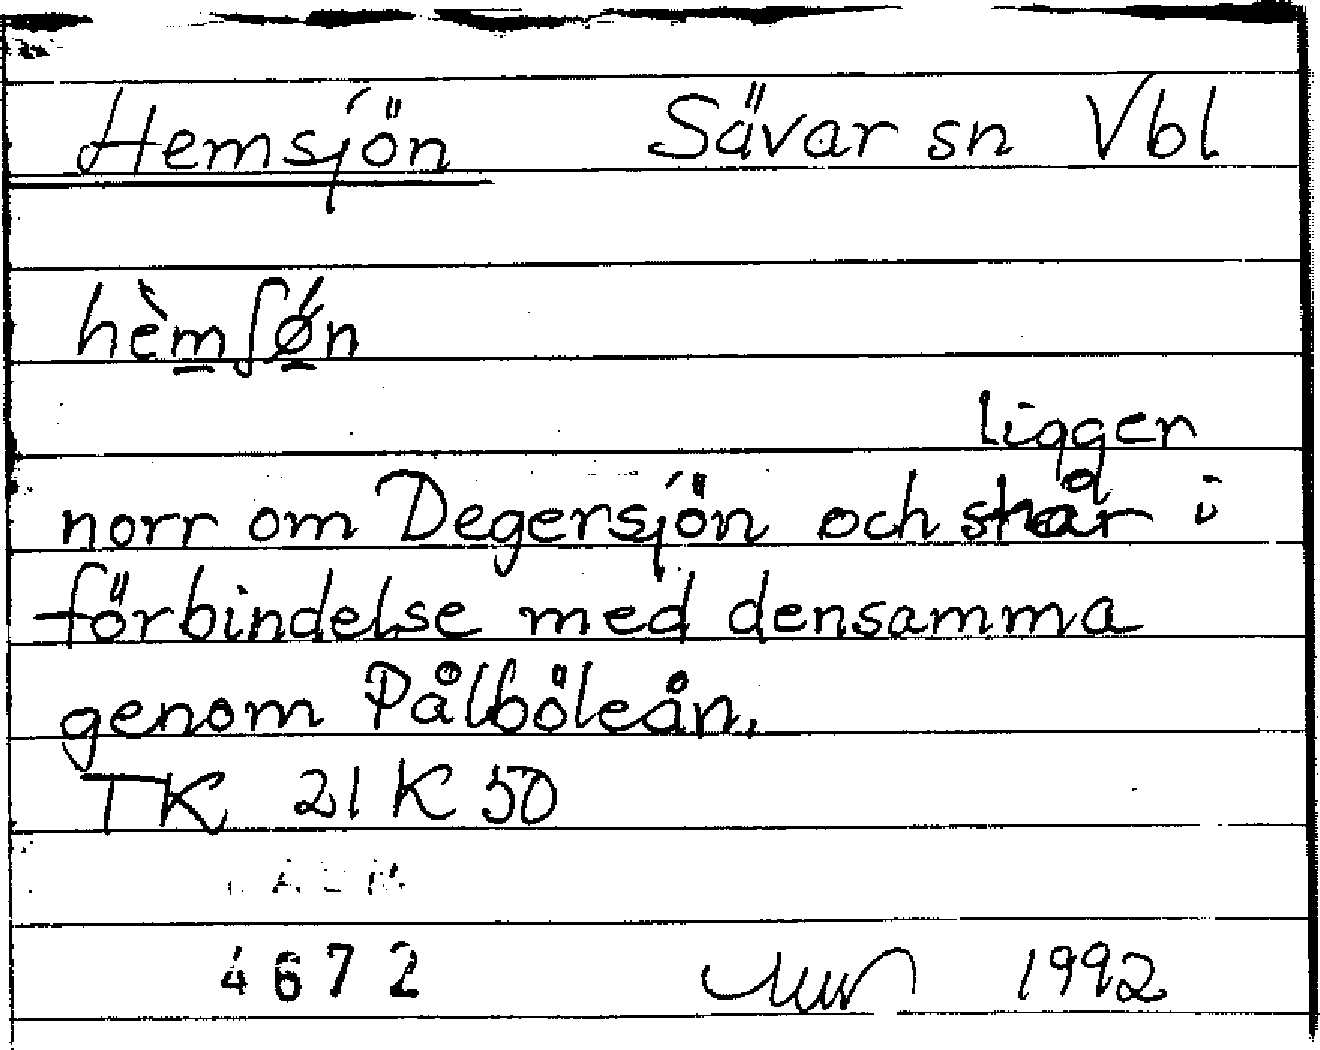 Hemsjön Sävar sn Vbl
hèmʃǿn
ligger
norr om Degersjön och står i
förbindelse med densamma
genom Pålböleån.
TK 21 K 50
4672 1992